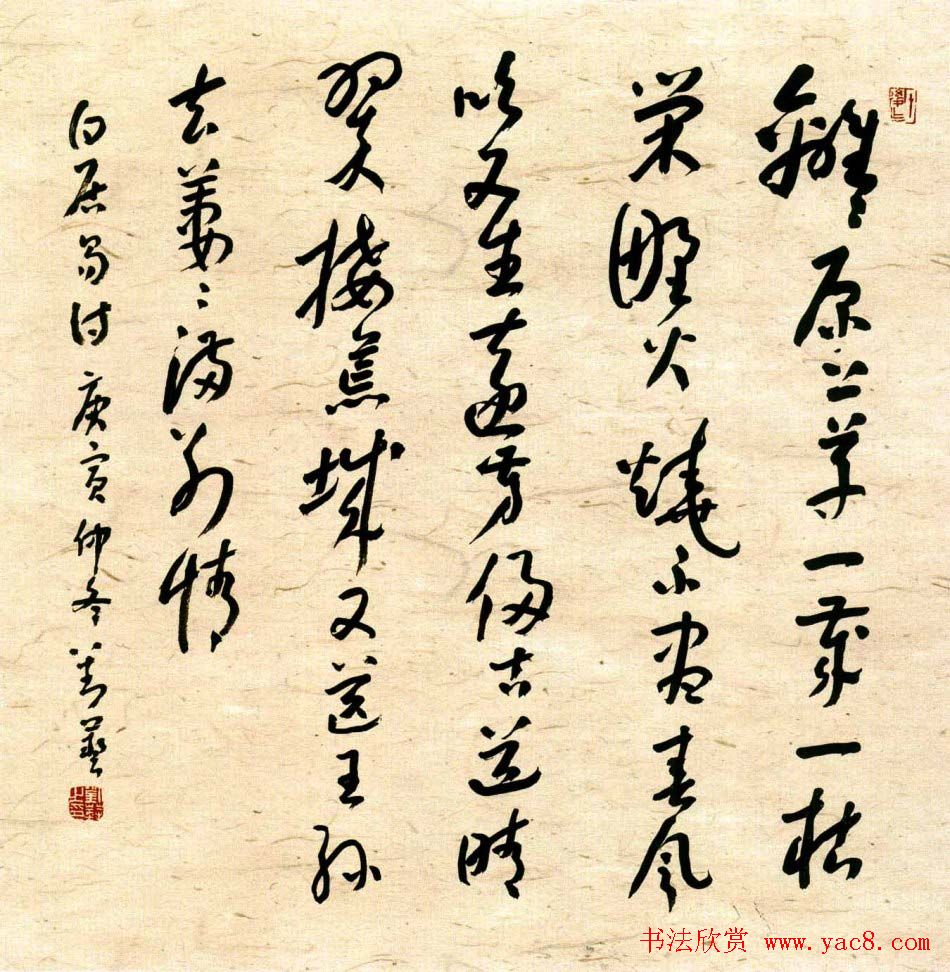 離々原上草一歲一枯
榮野火燒不盡春風
吹又生遠芳侵古道晴
翠接荒城又送王孫
去萋々滿別情
白居易诗 庚寅仲冬
书法欣赏 www.yac8.com